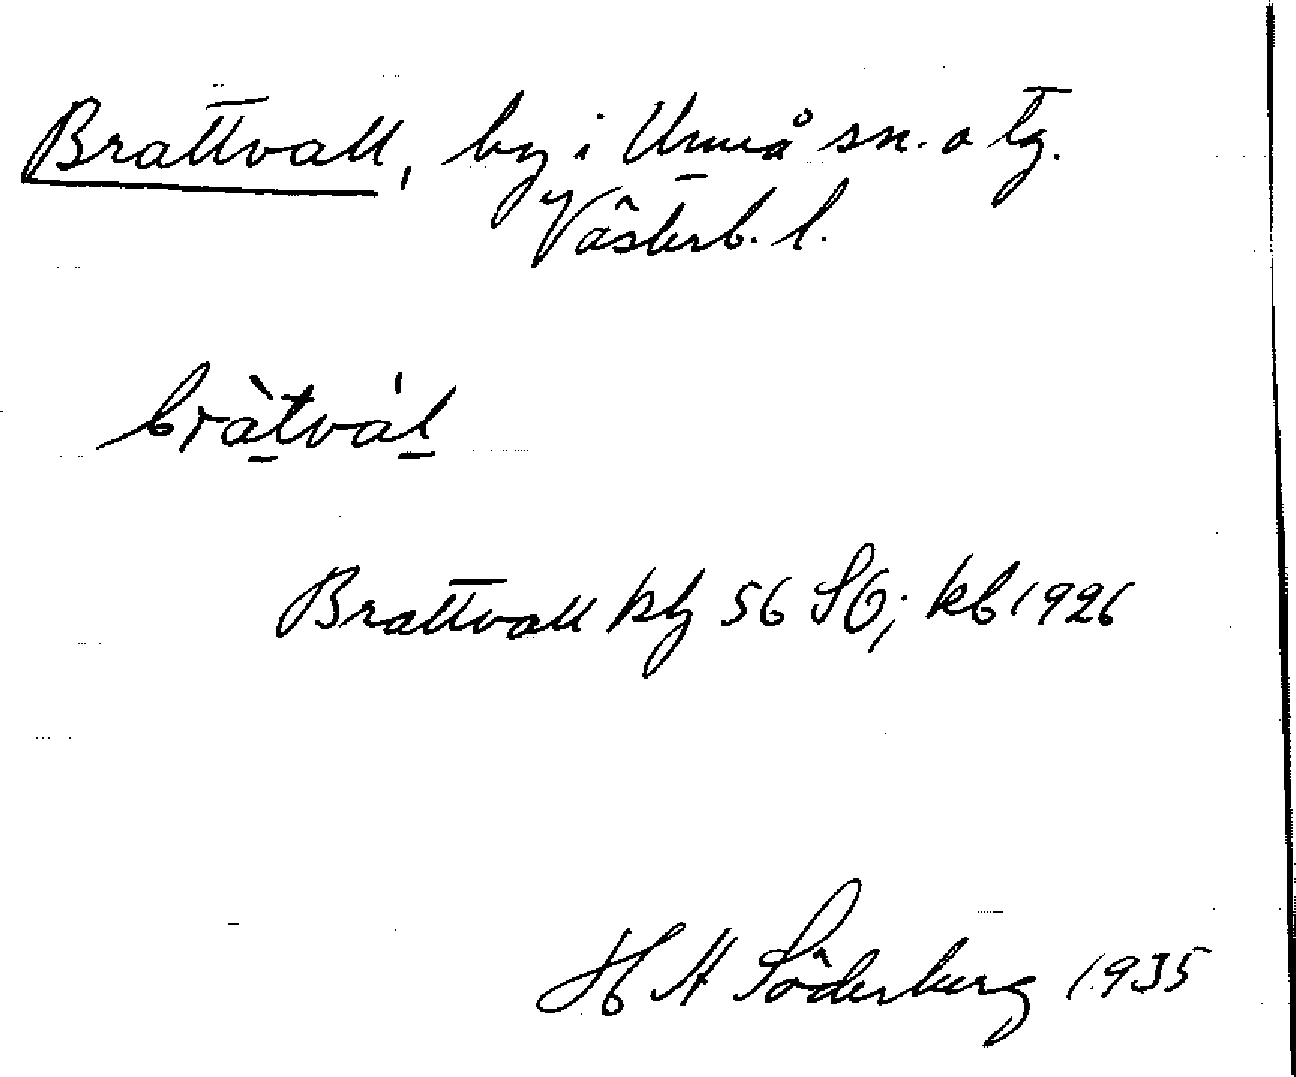 Brattvall, by i Umeå sn. o tg.
Västerb. l.
bràtvál
Brattvall kbg 56 SG; kb 1926
H A Söderberg 1935